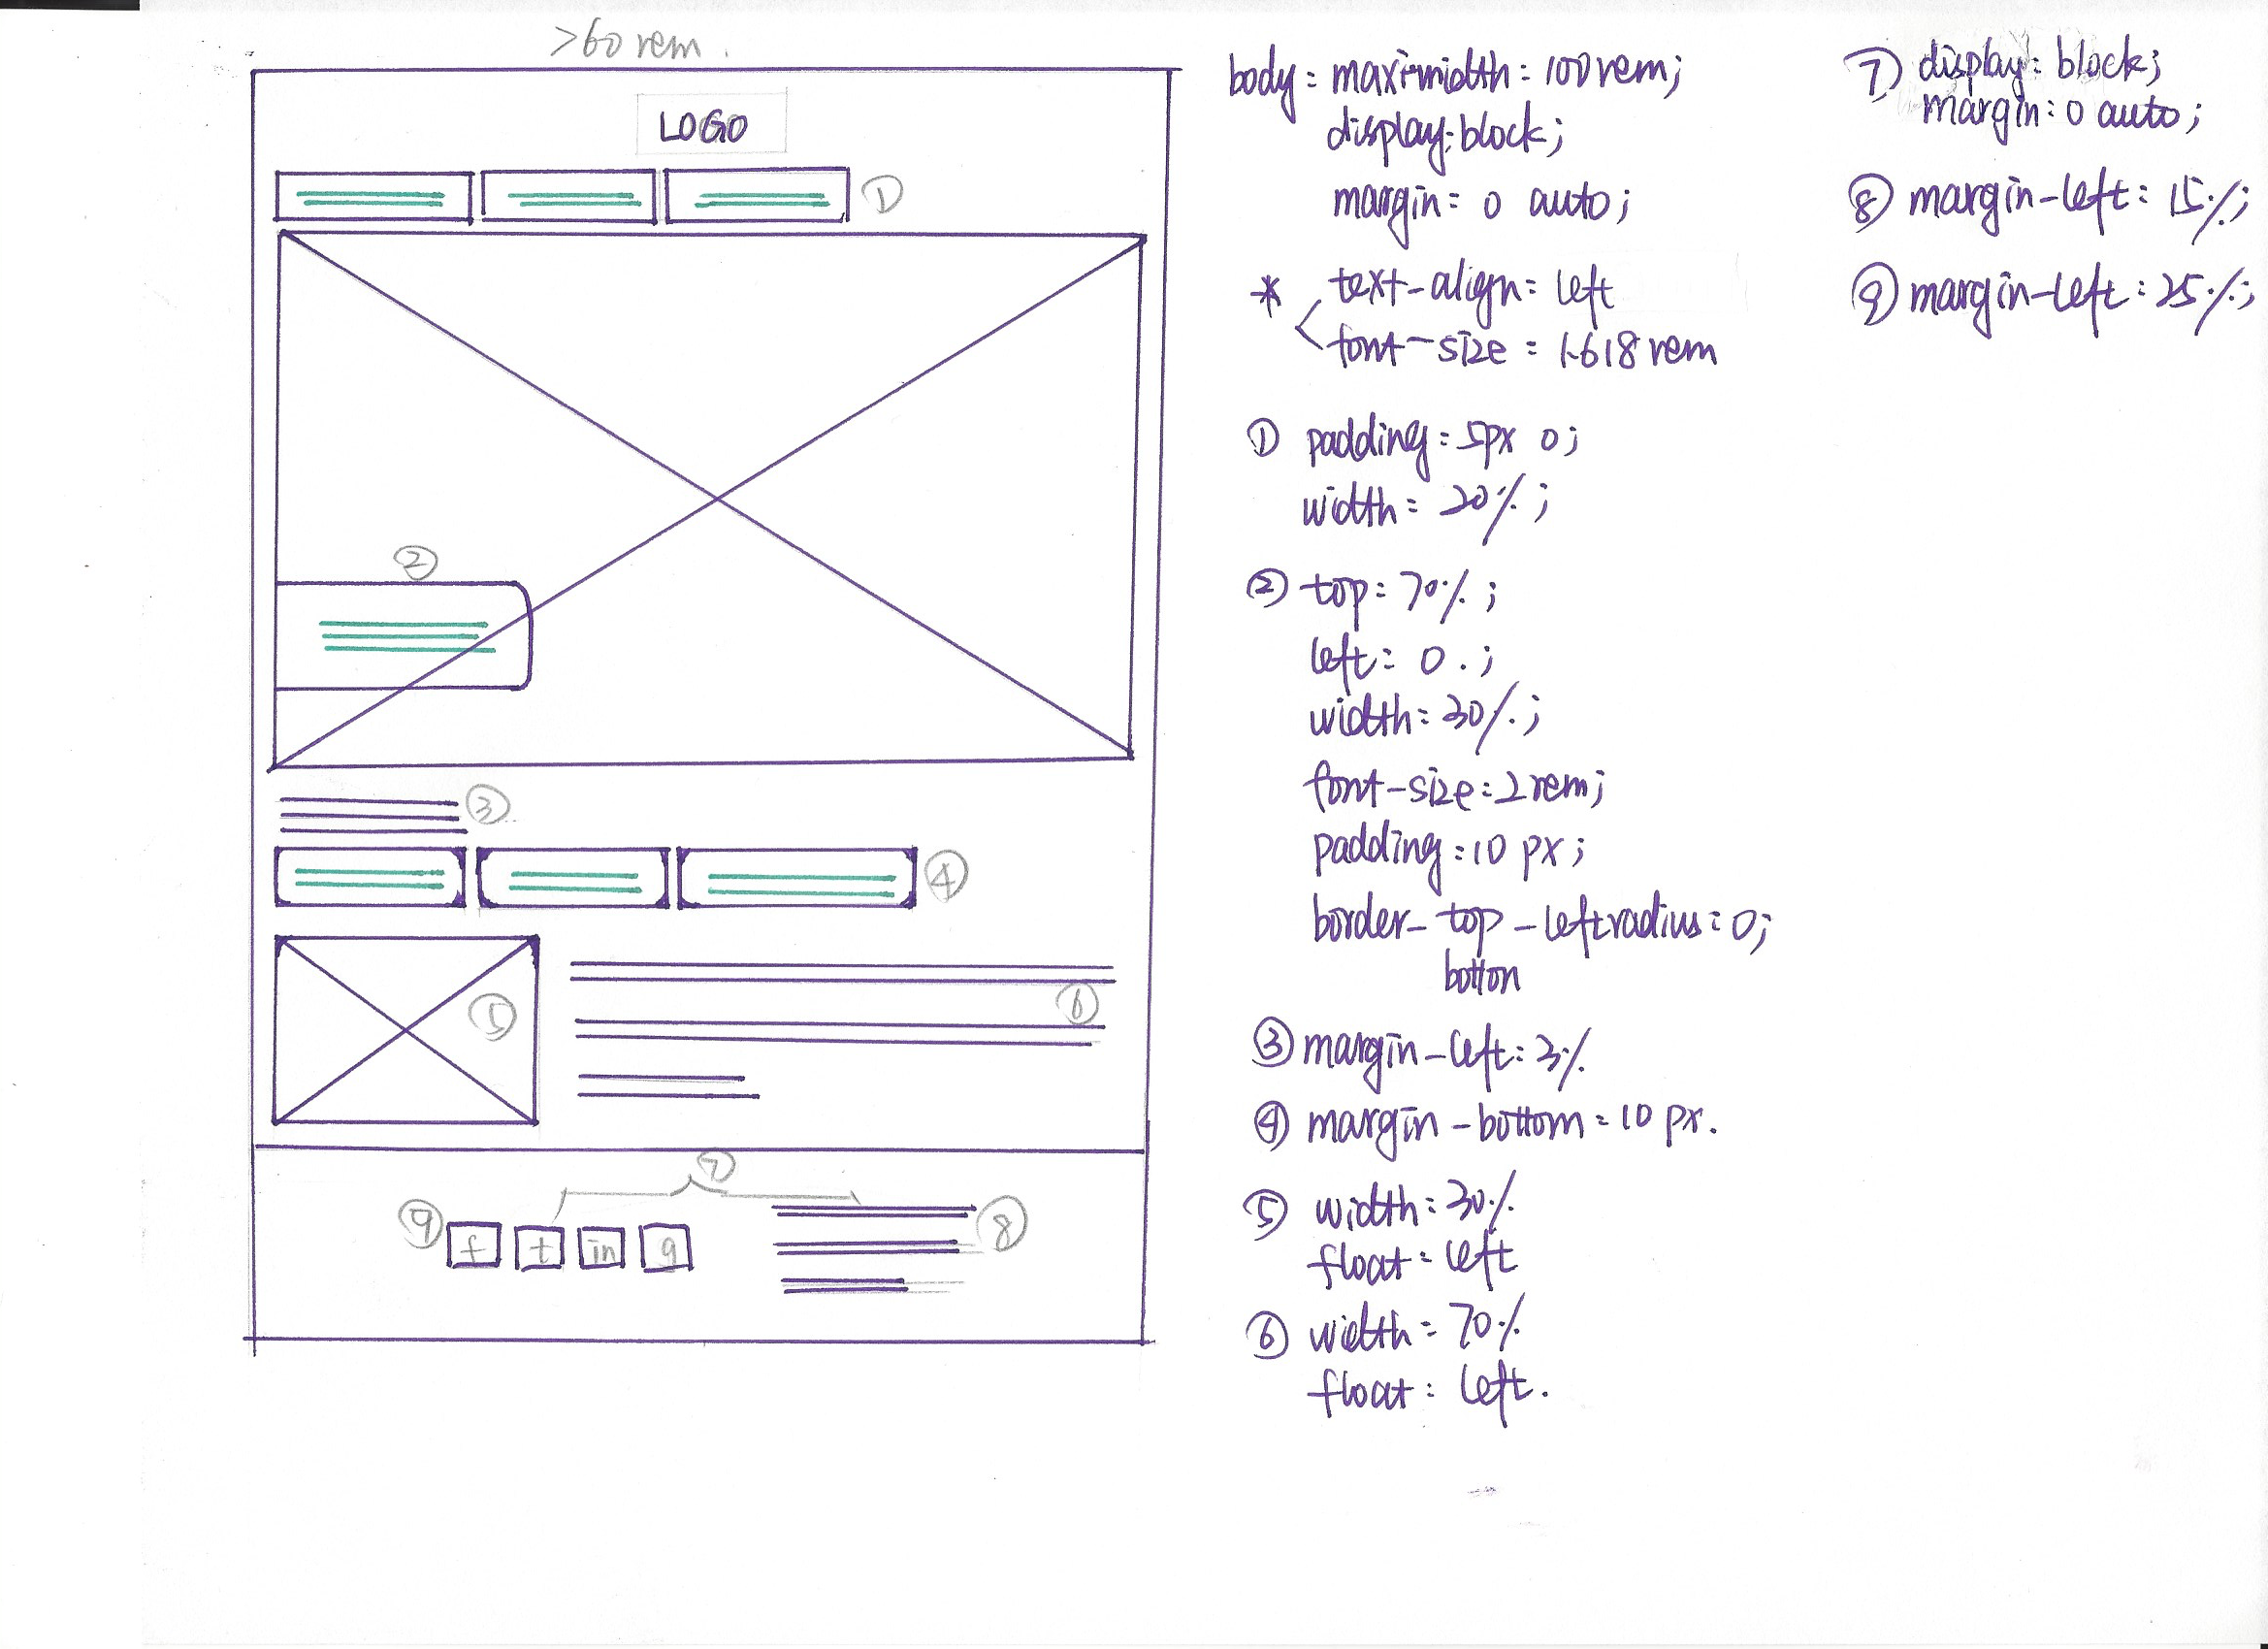 >60 rem.
LOGO
①
②
③
④
⑤
⑥
⑦
⑨
f t in g
⑧
body: max-width: 100rem;
display: block;
margin: 0 auto;
* text-align: left
font-size: 1.618 rem
① padding: 5px 0;
width: 20%;
② top: 70%;
left: 0.;
width: 30%;
font-size: 2rem;
padding: 10 px;
border-top-left radius: 0;
botton
③ margin-left: 3%
④ margin-bottom: 10 px.
⑤ width: 30%
float: left
⑥ width: 70%
float: left.
⑦ display: block;
margin: 0 auto;
⑧ margin-left: 15%;
⑨ margin-left: 25%;